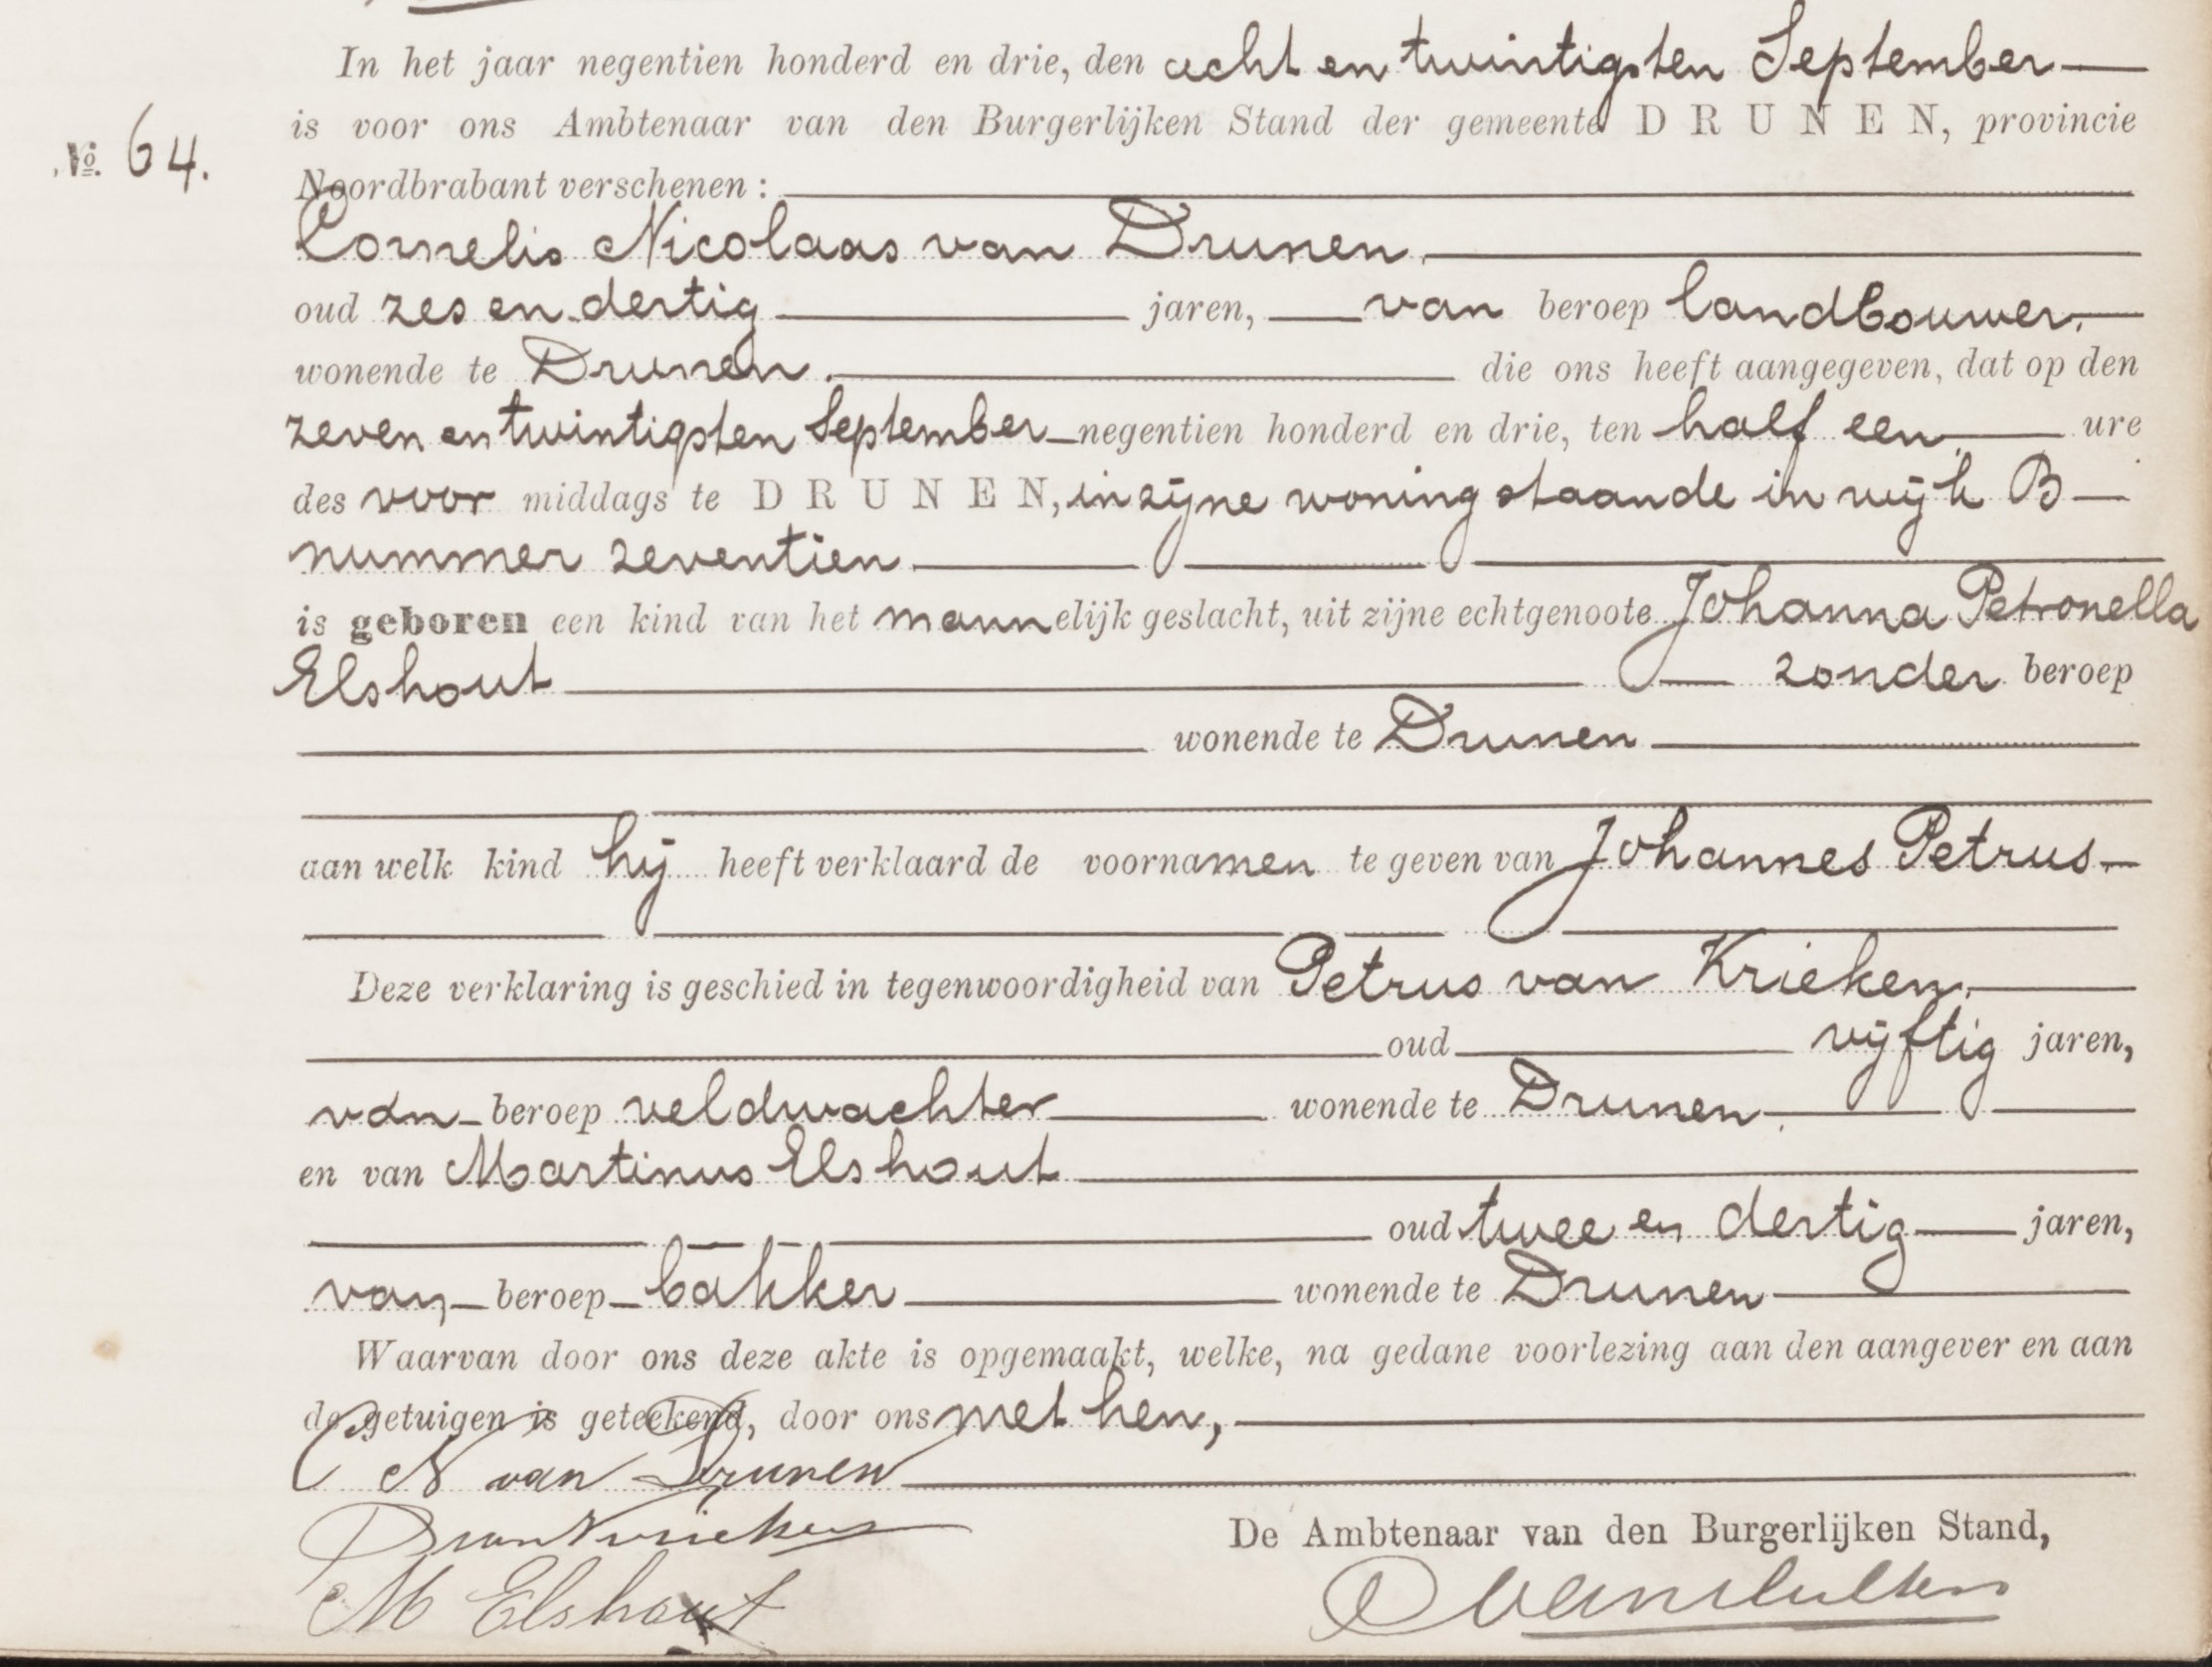 In het jaar negentien honderd en drie, den acht en twintigsten September
is voor ons Ambtenaar van den Burgerlijken Stand der gemeente DRUNEN, provincie
No. 64.
Noordbrabant verschenen:
Cornelis Nicolaas van Drunen
oud zes en dertig jaren, van beroep landbouwer,
wonende te Drunen. die ons heeft aangegeven, dat op den
zeven en twintigsten September negentien honderd en drie, ten half een ure
des voor middags te DRUNEN, in zijne woning staande in wijk B
nummer zeventien
is geboren een kind van het mannelijk geslacht, uit zijne echtgenoote Johanna Petronella
Elshout zonder beroep
wonende te Drunen
aan welk kind hij heeft verklaard de voornamen te geven van Johannes Petrus
Deze verklaring is geschied in tegenwoordigheid van Petrus van Krieken,
oud vijftig jaren,
van beroep veldwachter wonende te Drunen
en van Martinus Elshout
oud twee en dertig jaren,
van beroep bakker wonende te Drunen
Waarvan door ons deze akte is opgemaakt, welke, na gedane voorlezing aan den aangever en aan
de getuigen is geteekend, door ons met hen,
C N van Drunen
P van Krieken
De Ambtenaar van den Burgerlijken Stand,
M Elshout